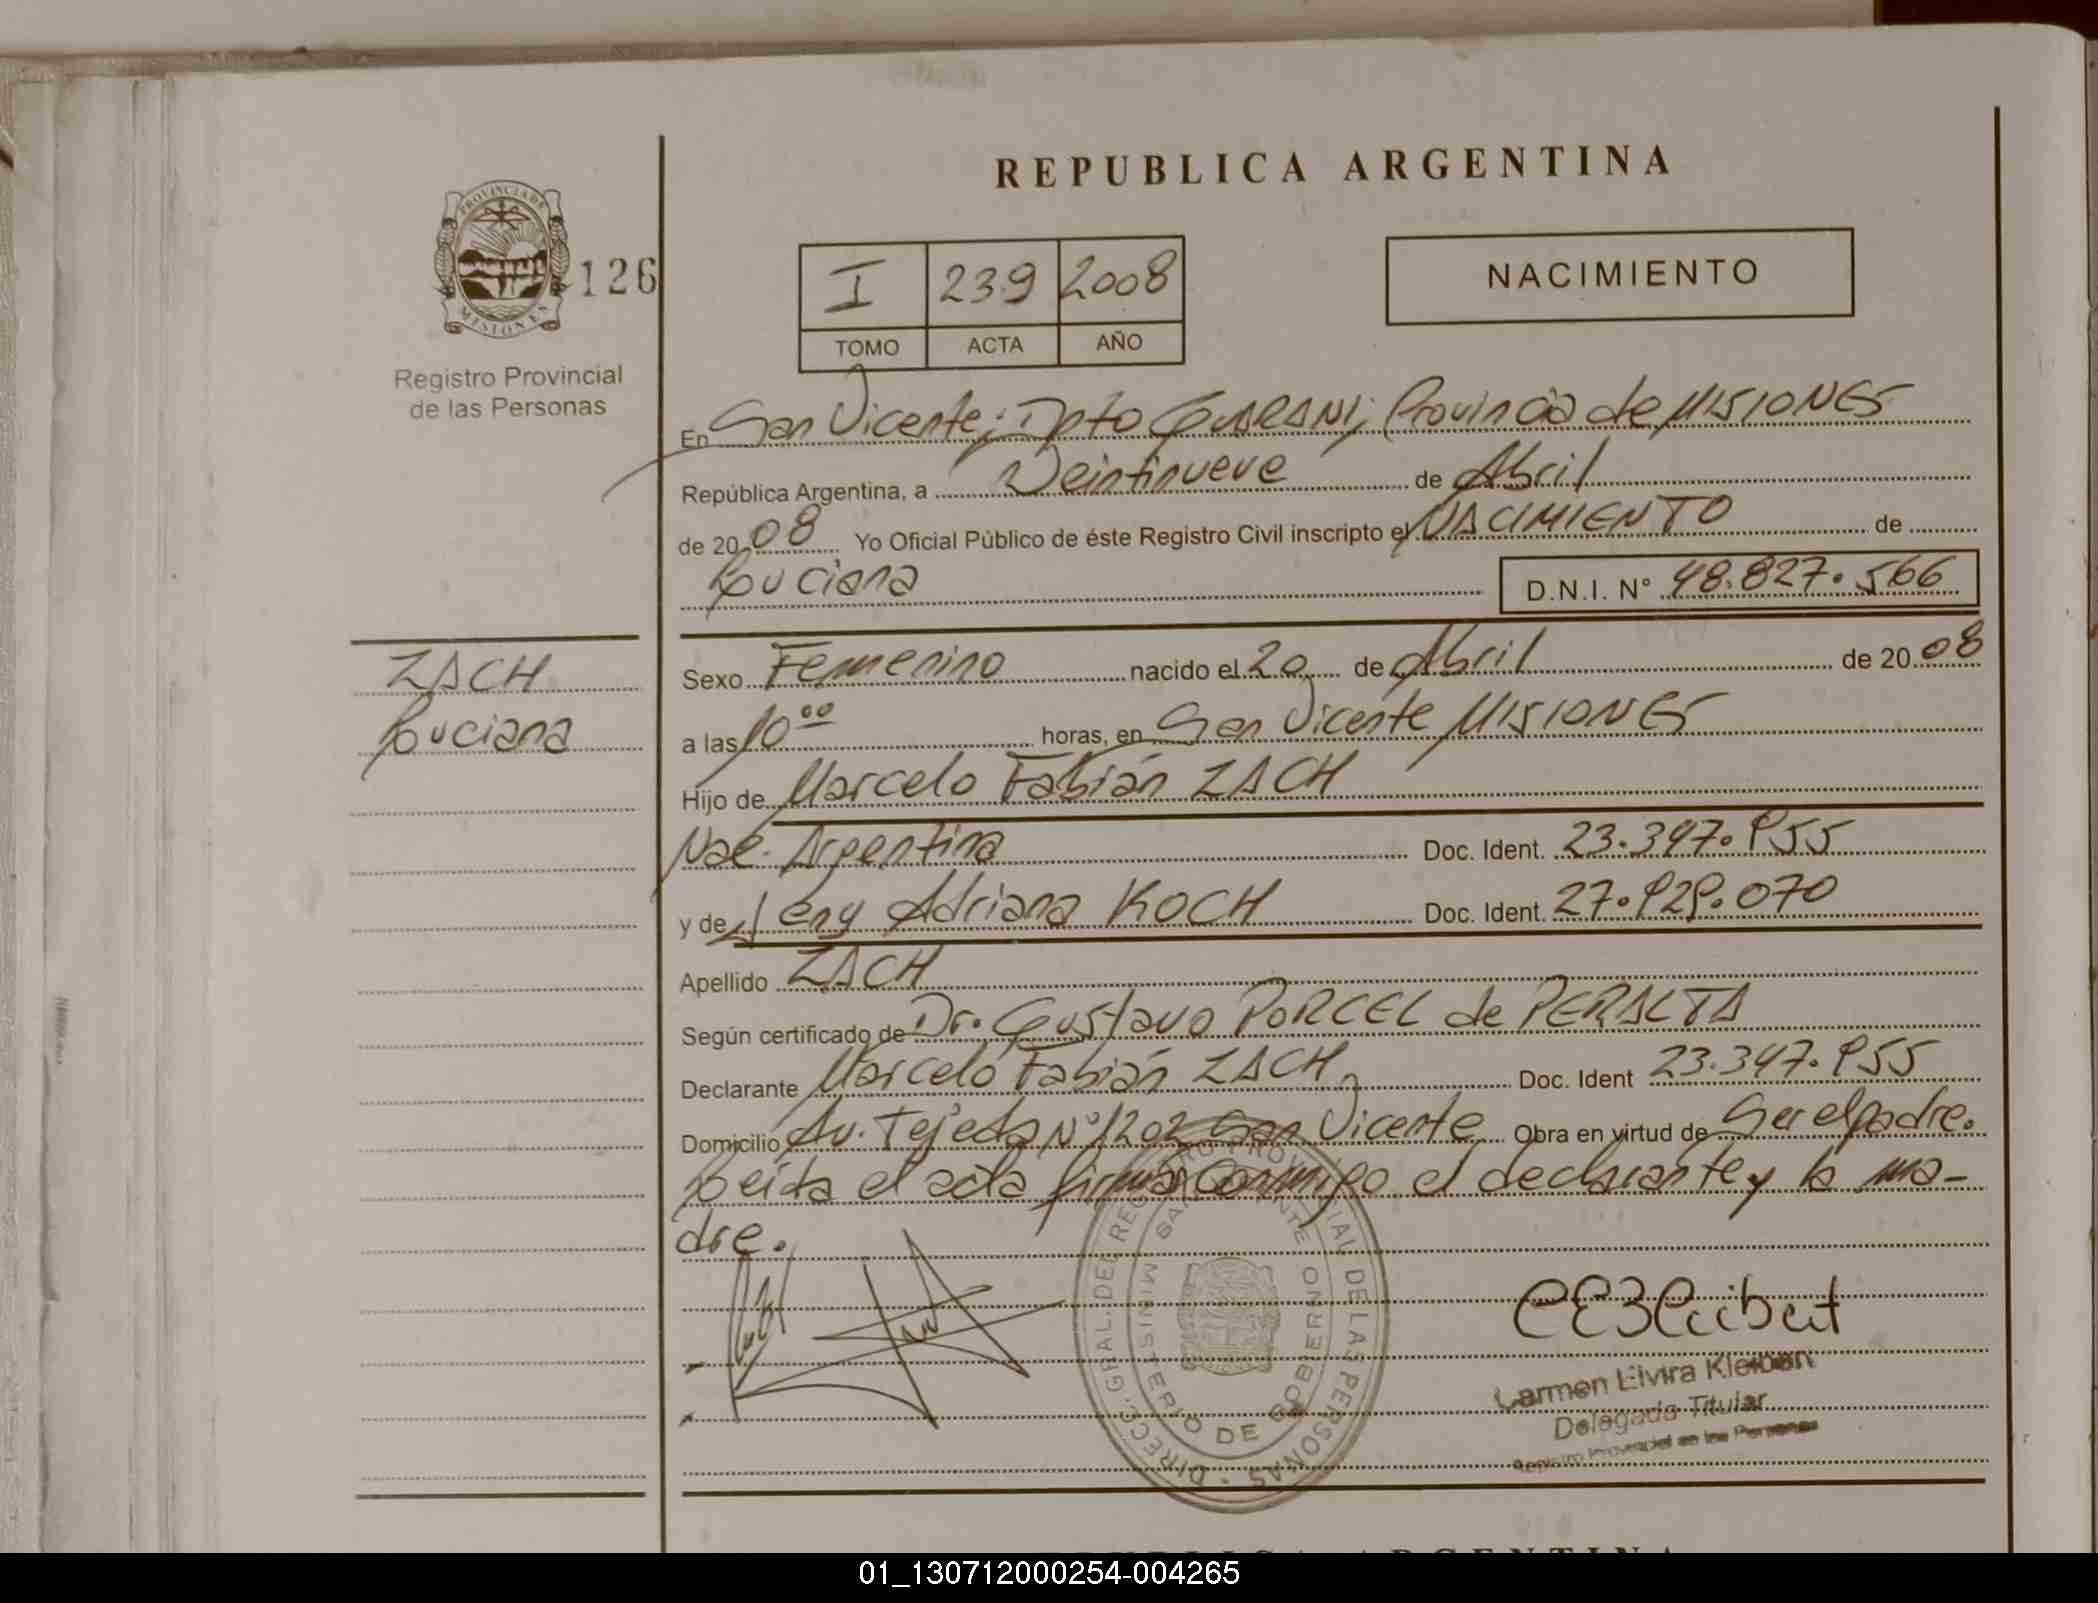 REPUBLICA ARGENTINA
PROVINCIA DE MISIONES
126
Registro Provincial
de las Personas
I 239 2008
TOMO ACTA AÑO
NACIMIENTO
En San Vicente; Dpto GUARANI; Provincia de MISIONES
República Argentina, a Veintinueve de Abril
de 2008 Yo Oficial Público de éste Registro Civil inscripto el NACIMIENTO de
Luciana D.N.I. Nº 48.827.566
ZACH
Luciana
Sexo Femenino nacido el 20 de Abril de 2008
a las 10 00 horas, en San Vicente MISIONES
Hijo de Marcelo Fabián ZACH
Nac. Argentina Doc. Ident. 23.347.955
y de Leny Adriana KOCH Doc. Ident. 27.929.070
Apellido ZACH
Según certificado de Dr. Gustavo PORCEL de PERALTA
Declarante Marcelo Fabián ZACH Doc. Ident 23.347.955
Domicilio Av. Tejeda Nº 1202 San Vicente Obra en virtud de Ser el padre.
Leída el acta firma conmigo el declarante y la ma-
dre.
DIRECC. GRAL. DEL REGISTRO PROVINCIAL DE LAS PERSONAS
SAN VICENTE
MINISTERIO DE GOBIERNO
Carmen Elvira Kleibert
Delegada Titular
Registro Provincial de las Personas
REPUBLICA ARGENTINA
01_130712000254-004265